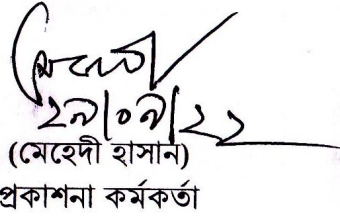 মেহেদী
২৯/০৯/২২
(মেহেদী হাসান)
প্রকাশনা কর্মকর্তা